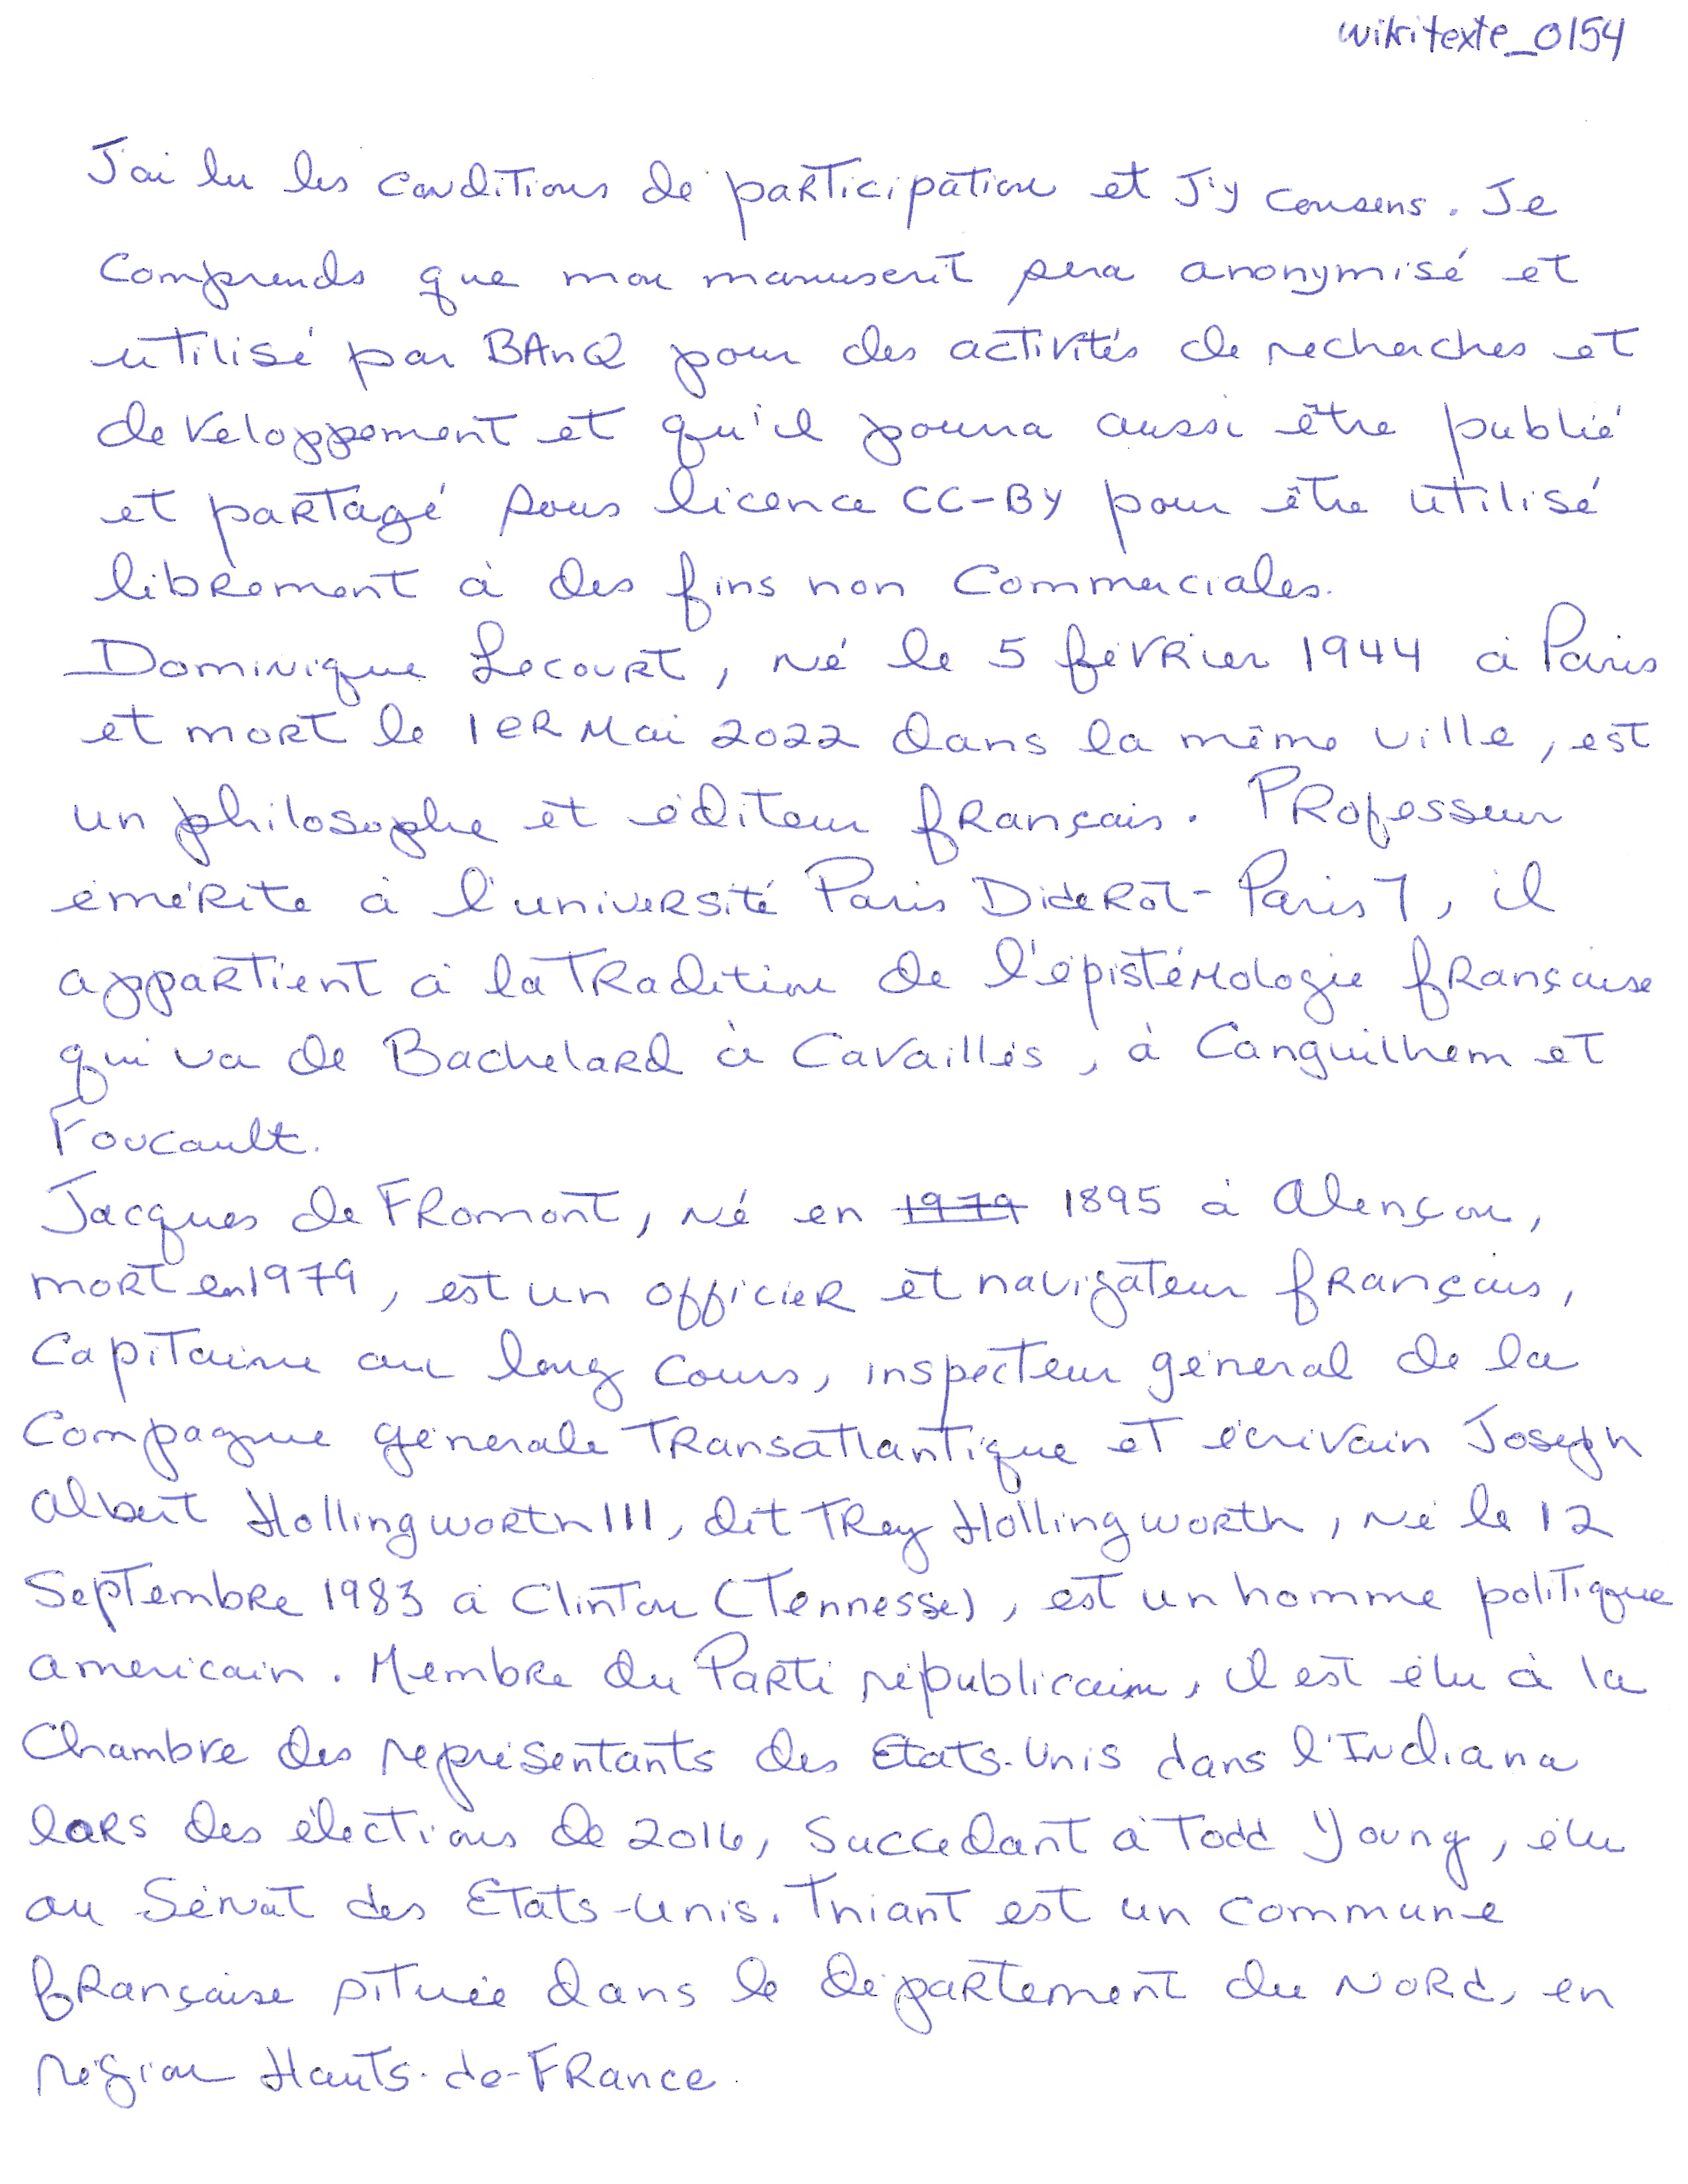 wikitexte_0154
J'ai lu les conditions de participation et J'y consens. Je
comprends que mon manuscrit sera anonymisé et
utilisé par BAnQ pour des activités de recherches et
developpement et qu'il pourra aussi être publié
et partagé sous licence CC-BY pour être utilisé
librement à des fins non commerciales.
Dominique Lecourt, né le 5 février 1944 à Paris
et mort le 1er Mai 2022 dans la même ville, est
un philosophe et éditeur français. Professeur
émérite à l'université Paris Diderot-Paris 7, il
appartient à la tradition de l'épistémologie française
qui va de Bachelard à Cavaillès, à Canguilhem et
Foucault.
Jacques de Fromont, né en 1979 1895 à Alençon,
mort en 1979, est un officier et navigateur français,
Capitaine au long cours, inspecteur général de la
Compagnie générale Transatlantique et écrivain Joseph
Albert Hollingworth III, dit Trey Hollingworth, né le 12
Septembre 1983 à Clinton (Tennesse), est un homme politique
americain. Membre du Parti républicain, il est élu à la
Chambre des représentants des Etats-Unis dans l'Indiana
lors des élections de 2016, Succedant à Todd Young, élu
au Sénat des Etats-Unis. Thiant est un commune
française située dans le département du Nord, en
région Hauts-de-France.